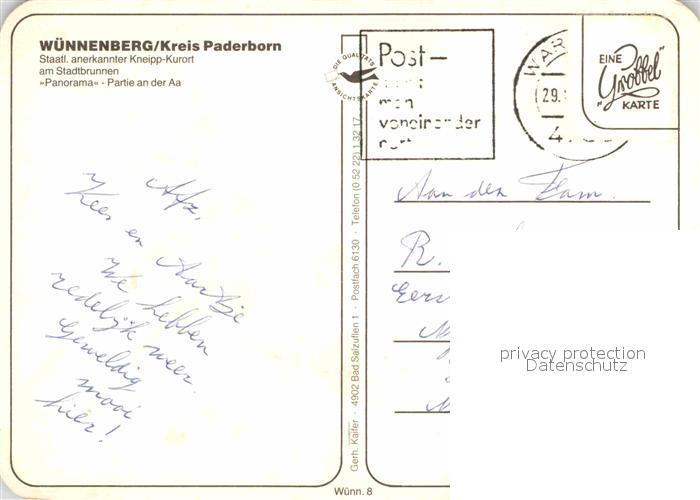 WÜNNENBERG/Kreis Paderborn
Staatl. anerkannter Kneipp-Kurort
am Stadtbrunnen
»Panorama« - Partie an der Aa
DIE QUALITÄTS
ANSICHTSKARTE
Post-
man
voneinander
WAR
29.
4
EINE
"Grobbel"
KARTE
Afz,
Kees en Aartje
We hebben
redelijk weer.
Geweldig
mooi
hier!
Gerh. Kaifer · 4902 Bad Salzuflen 1 · Postfach 6130 · Telefon (0 52 22) 1 32 17
Aan den Ham.
R.
Eers
privacy protection
Datenschutz
Wünn. 8